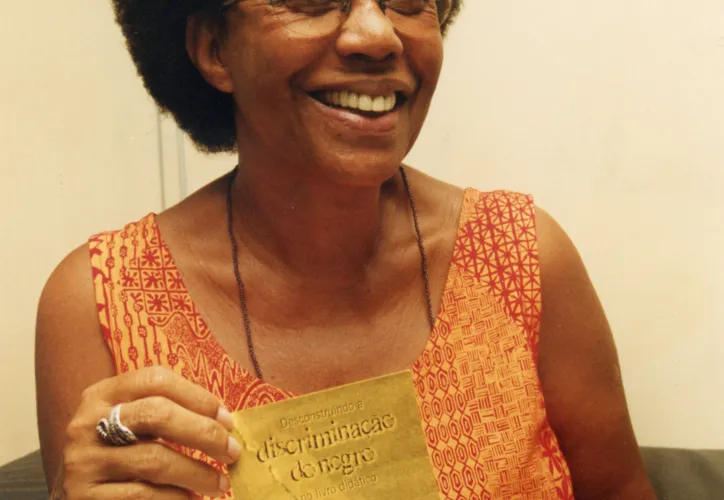 Desconstruindo a
discriminação
do negro
no livro didático